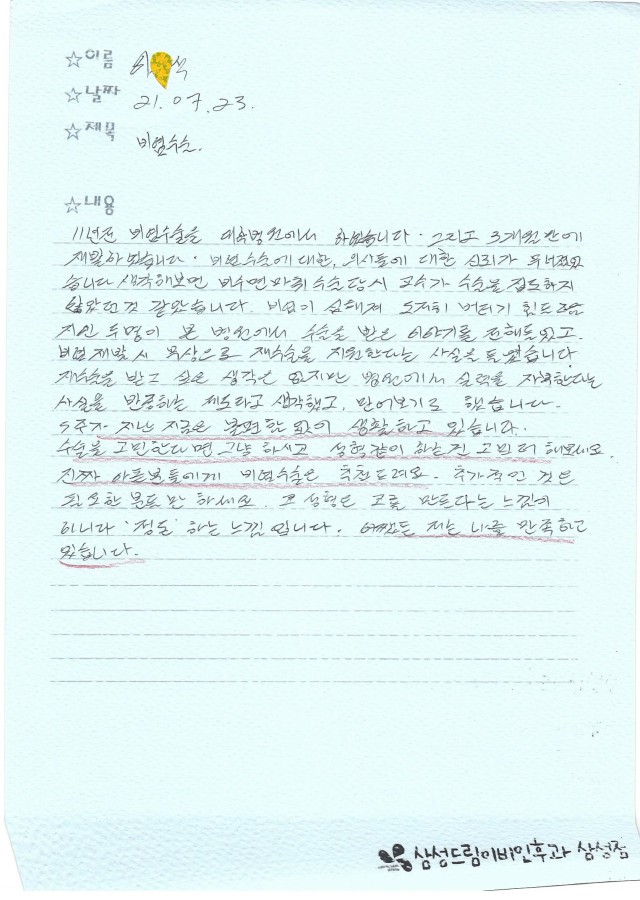 ☆이름
☆날짜 21. 07. 23.
☆제목 비염수술.
☆내용
11년전 비염수술을 대학병원에서 하였습니다. 그리고 3개월만에
재발하였습니다. 비염수술에 대한, 의사들에 대한 신뢰가 무너졌었
습니다 생각해보면 비수면마취 수술 당시 교수가 수술을 집도하지
않았던것 같았습니다. 비염이 심해져 도저히 버티기 힘드 무렵
지인 두명이 본 병원에서 수술을 받은 이야기를 전해들었고,
비염재발 시 무상으로 재수술을 지원한다는 사실을 들었습니다.
재수술을 받고 싶은 생각은 없지만 병원에서 실력을 자부한다는
사실을 반증하는 제도라고 생각했고, 믿어보기로 했습니다.
5주차 지난 지금은 불편함 없이 생활하고 있습니다.
수술을 고민한다면 그냥 하시고 성형같이 하는건 고민 더 해보세요.
진짜 아픈분들에게 비염수술은 추천드려요. 추가적인 것은
필요한 분들만 하세요. 코 성형은 코를 만든다는 느낌이
아니다 '정돈' 하는 느낌입니다. 어쨌든 저는 너무 만족하고
있습니다.
삼성드림이비인후과 삼성점